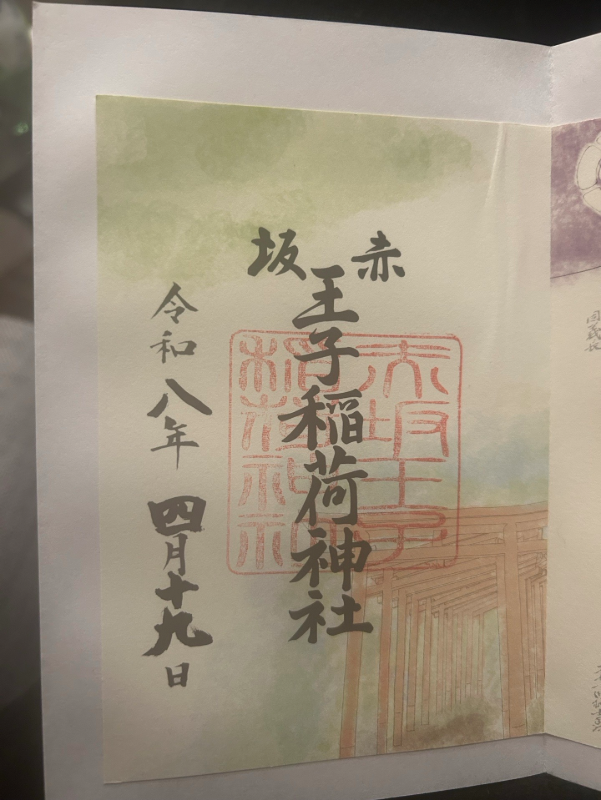 赤坂
王子稲荷神社
赤坂王子
稲荷神社
令和八年四月十九日